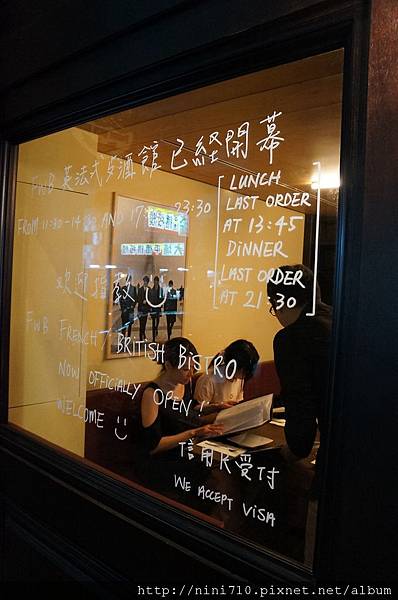 FWB 英法式多酒館已經開幕
FROM 11:30-14:30 AND 17:30-23:30
LUNCH
LAST ORDER
AT 13:45
DINNER
LAST ORDER
AT 21:30
歡迎指教
FWB FRENCH / BRITISH BISTRO
NOW OFFICIALLY OPEN!
WELCOME
信用卡受付
WE ACCEPT VISA
http://nini710.pixnet.net/album